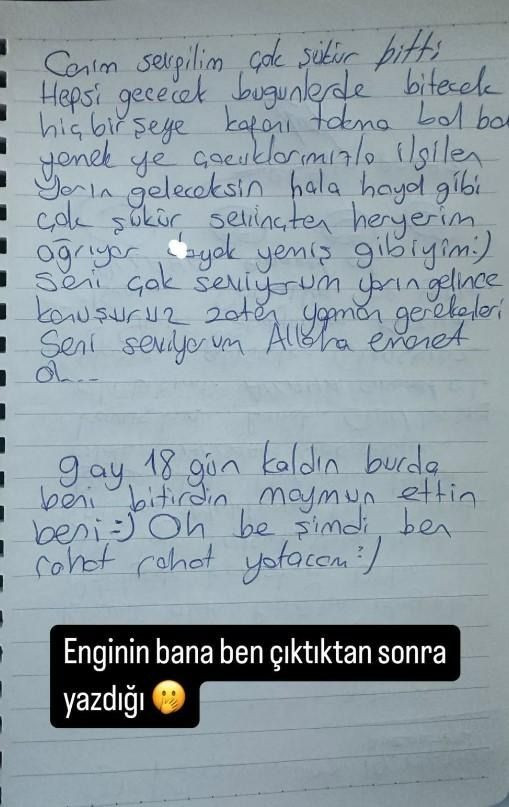 Canım sevgilim çok şükür bitti
Hepsi geçecek bugünlerde bitecek
hiçbirşeye kafanı takma bol bo
yemek ye çocuklarımızla ilgilen
Yarın geleceksin hala hayal gibi
çok şükür sevinçten heryerim
ağrıyor dayak yemiş gibiyim:)
Seni çok seviyorum yarın gelince
konuşuruz zaten yapman gerekenleri
Seni seviyorum Allaha emanet
ol...
9 ay 18 gün kaldın burda
beni bitirdin maymun ettin
beni=) Oh be şimdi ben
rahat rahat yatacam:)
Enginin bana ben çıktıktan sonra
yazdığı 🤭